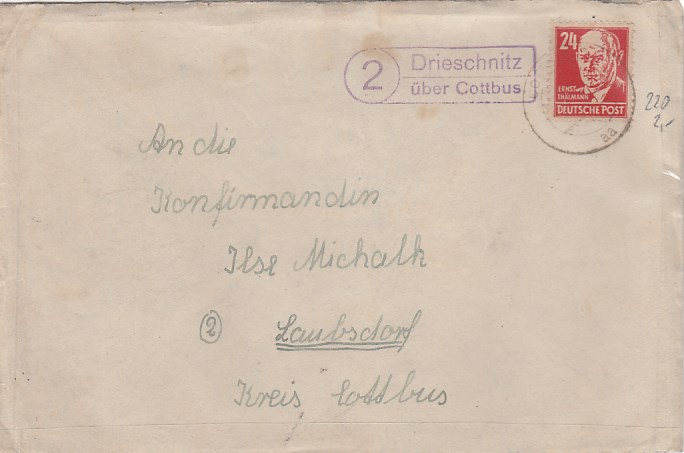 2
Drieschnitz
über Cottbus
24
ERNST
THÄLMANN
DEUTSCHE POST
aa
220
2,-
An die
Konfirmandin
Ilse Michalk
2 Laubsdorf
Kreis Cottbus